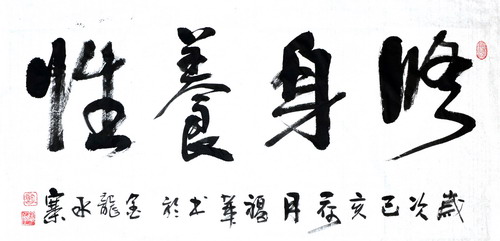 修身養性
歲次己亥月福華书於金龍水寨